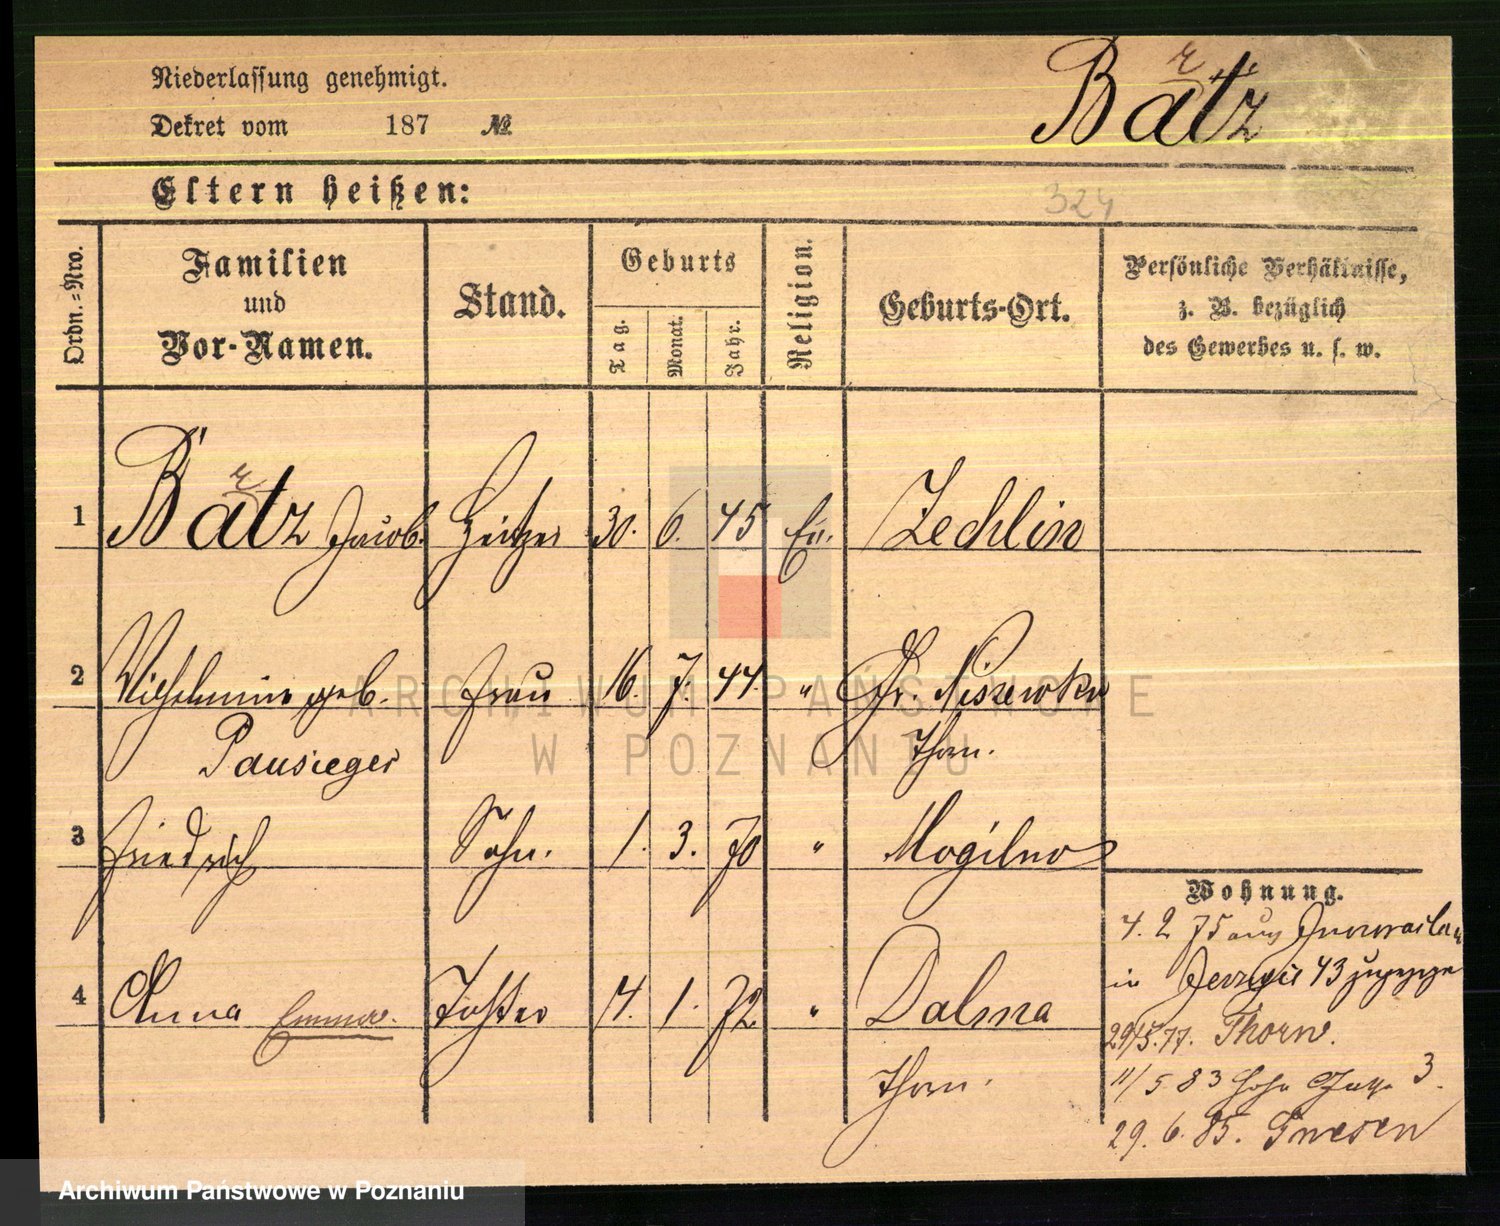 Niederlassung genehmigt.
Dekret vom 187 №
Bätz
r
Eltern heißen:
324
Ordn.=Nro.
Familien
und
Vor-Namen.
Stand.
Geburts
Tag.
Monat.
Jahr.
Religion.
Geburts-Ort.
Persönliche Verhältnisse,
z. B. bezüglich
des Gewerbes u. s. w.
r
1 Bätz Jacob. Heitzer 30. 6. 45 Ev. Zechlin
2 Wilhelmine geb. Frau 16. 7. 44. " Gr. Niszewke
Pausieger Thorn.
3 Friedrich Sohn. 1. 3. 70 " Mogilno
Wohnung.
4. 2 75 aus Inowraclaw
in Jerzyce 43 zugezogen
4 Anna Emma. Tochter 14. 1. 72 " Dalma
Thorn.
29/5.77. Thorn.
11/5 83 Hohe Gasse 3.
29. 6. 85. Gnesen
ARCHIWUM PAŃSTWOWE
W POZNANIU
Archiwum Państwowe w Poznaniu